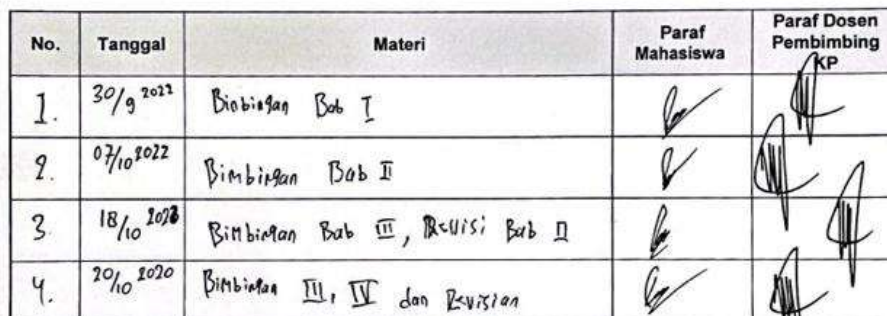 No. Tanggal Materi Paraf Mahasiswa Paraf Dosen Pembimbing KP
1. 30/9 2022 Bimbingan Bab I
2. 07/10 2022 Bimbingan Bab II
3. 18/10 2022 Bimbingan Bab III, Revisi Bab II
4. 20/10 2020 Bimbingan III, IV dan Revisian